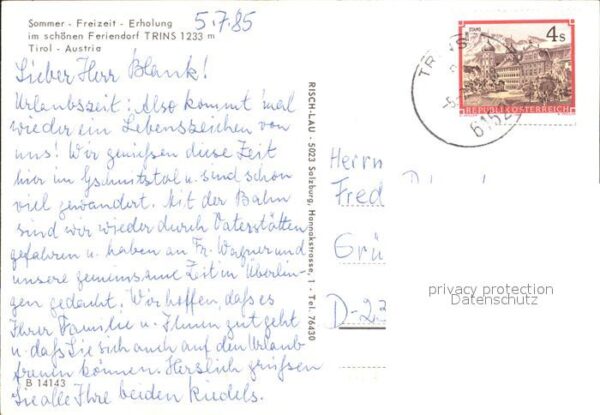 5.7.85
Sommer - Freizeit - Erholung
im schönen Feriendorf TRINS 1233 m
Tirol - Austria
Lieber Herr Blank!
Urlaubszeit: Also kommt 'mal
wieder ein Lebenszeichen von
uns! Wir genießen diese Zeit
hier im Gschnitztal u. sind schon
viel gewandert. Mit der Bahn
sind wir wieder durch Vaterstätten
gefahren u. haben an Fr. Wagner und
unsere gemeinsame Zeit in Überlin-
gen gedacht. Wir hoffen, daß es
Ihrer Familie u. Ihnen gut geht
u. daß Sie sich auch auf den Urlaub
freuen können. Herzlich grüßen
Sie alle Ihre beiden Riedels.
B 14143
RISCH-LAU · 5023 Salzburg, Hannakstrasse, 1 · Tel. 76430
STAMS
4s
REPUBLIK ÖSTERREICH
TRINS
6152
Herrn
Fred
Grü
D-23
privacy protection
Datenschutz